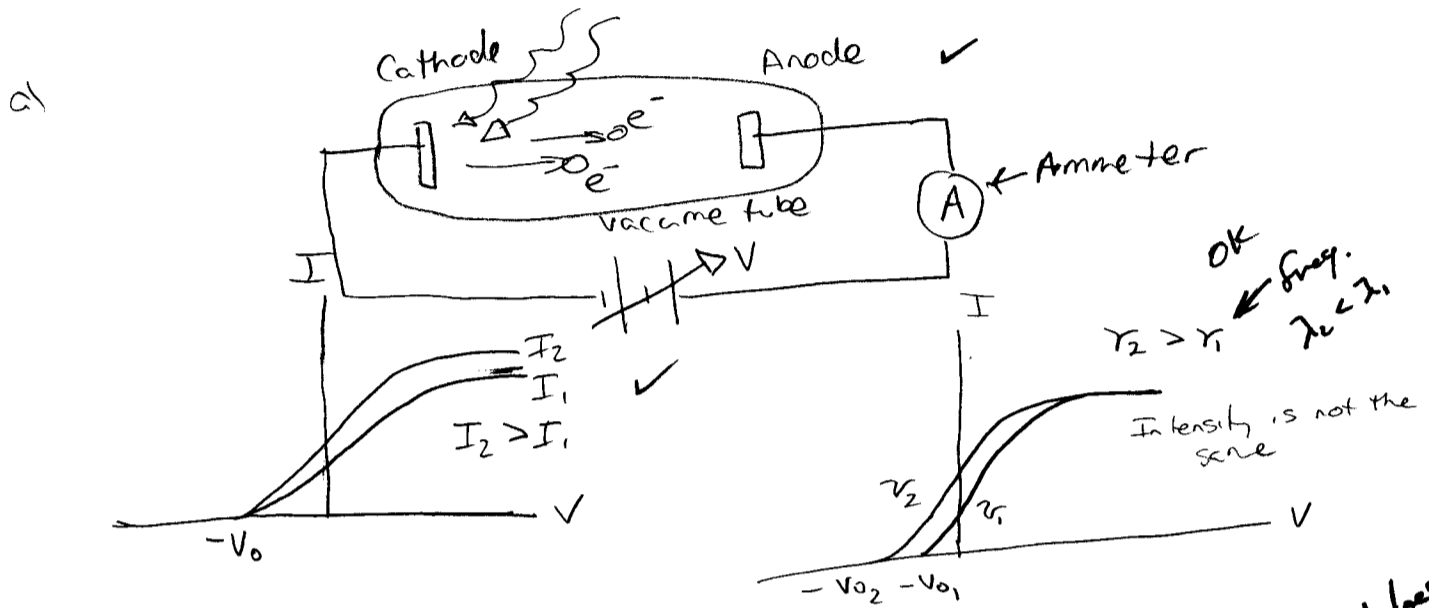 a)
Cathode
Anode ✓
e⁻
e⁻
A ← Ammeter
vacume tube
V
I
I₂
I₁ ✓
I₂ > I₁
V
-V₀
I
OK
freq.
λ₂ < λ₁
γ₂ > γ₁
Intensity is not the
same
ν₂
ν₁
V
-V₀₂ -V₀₁